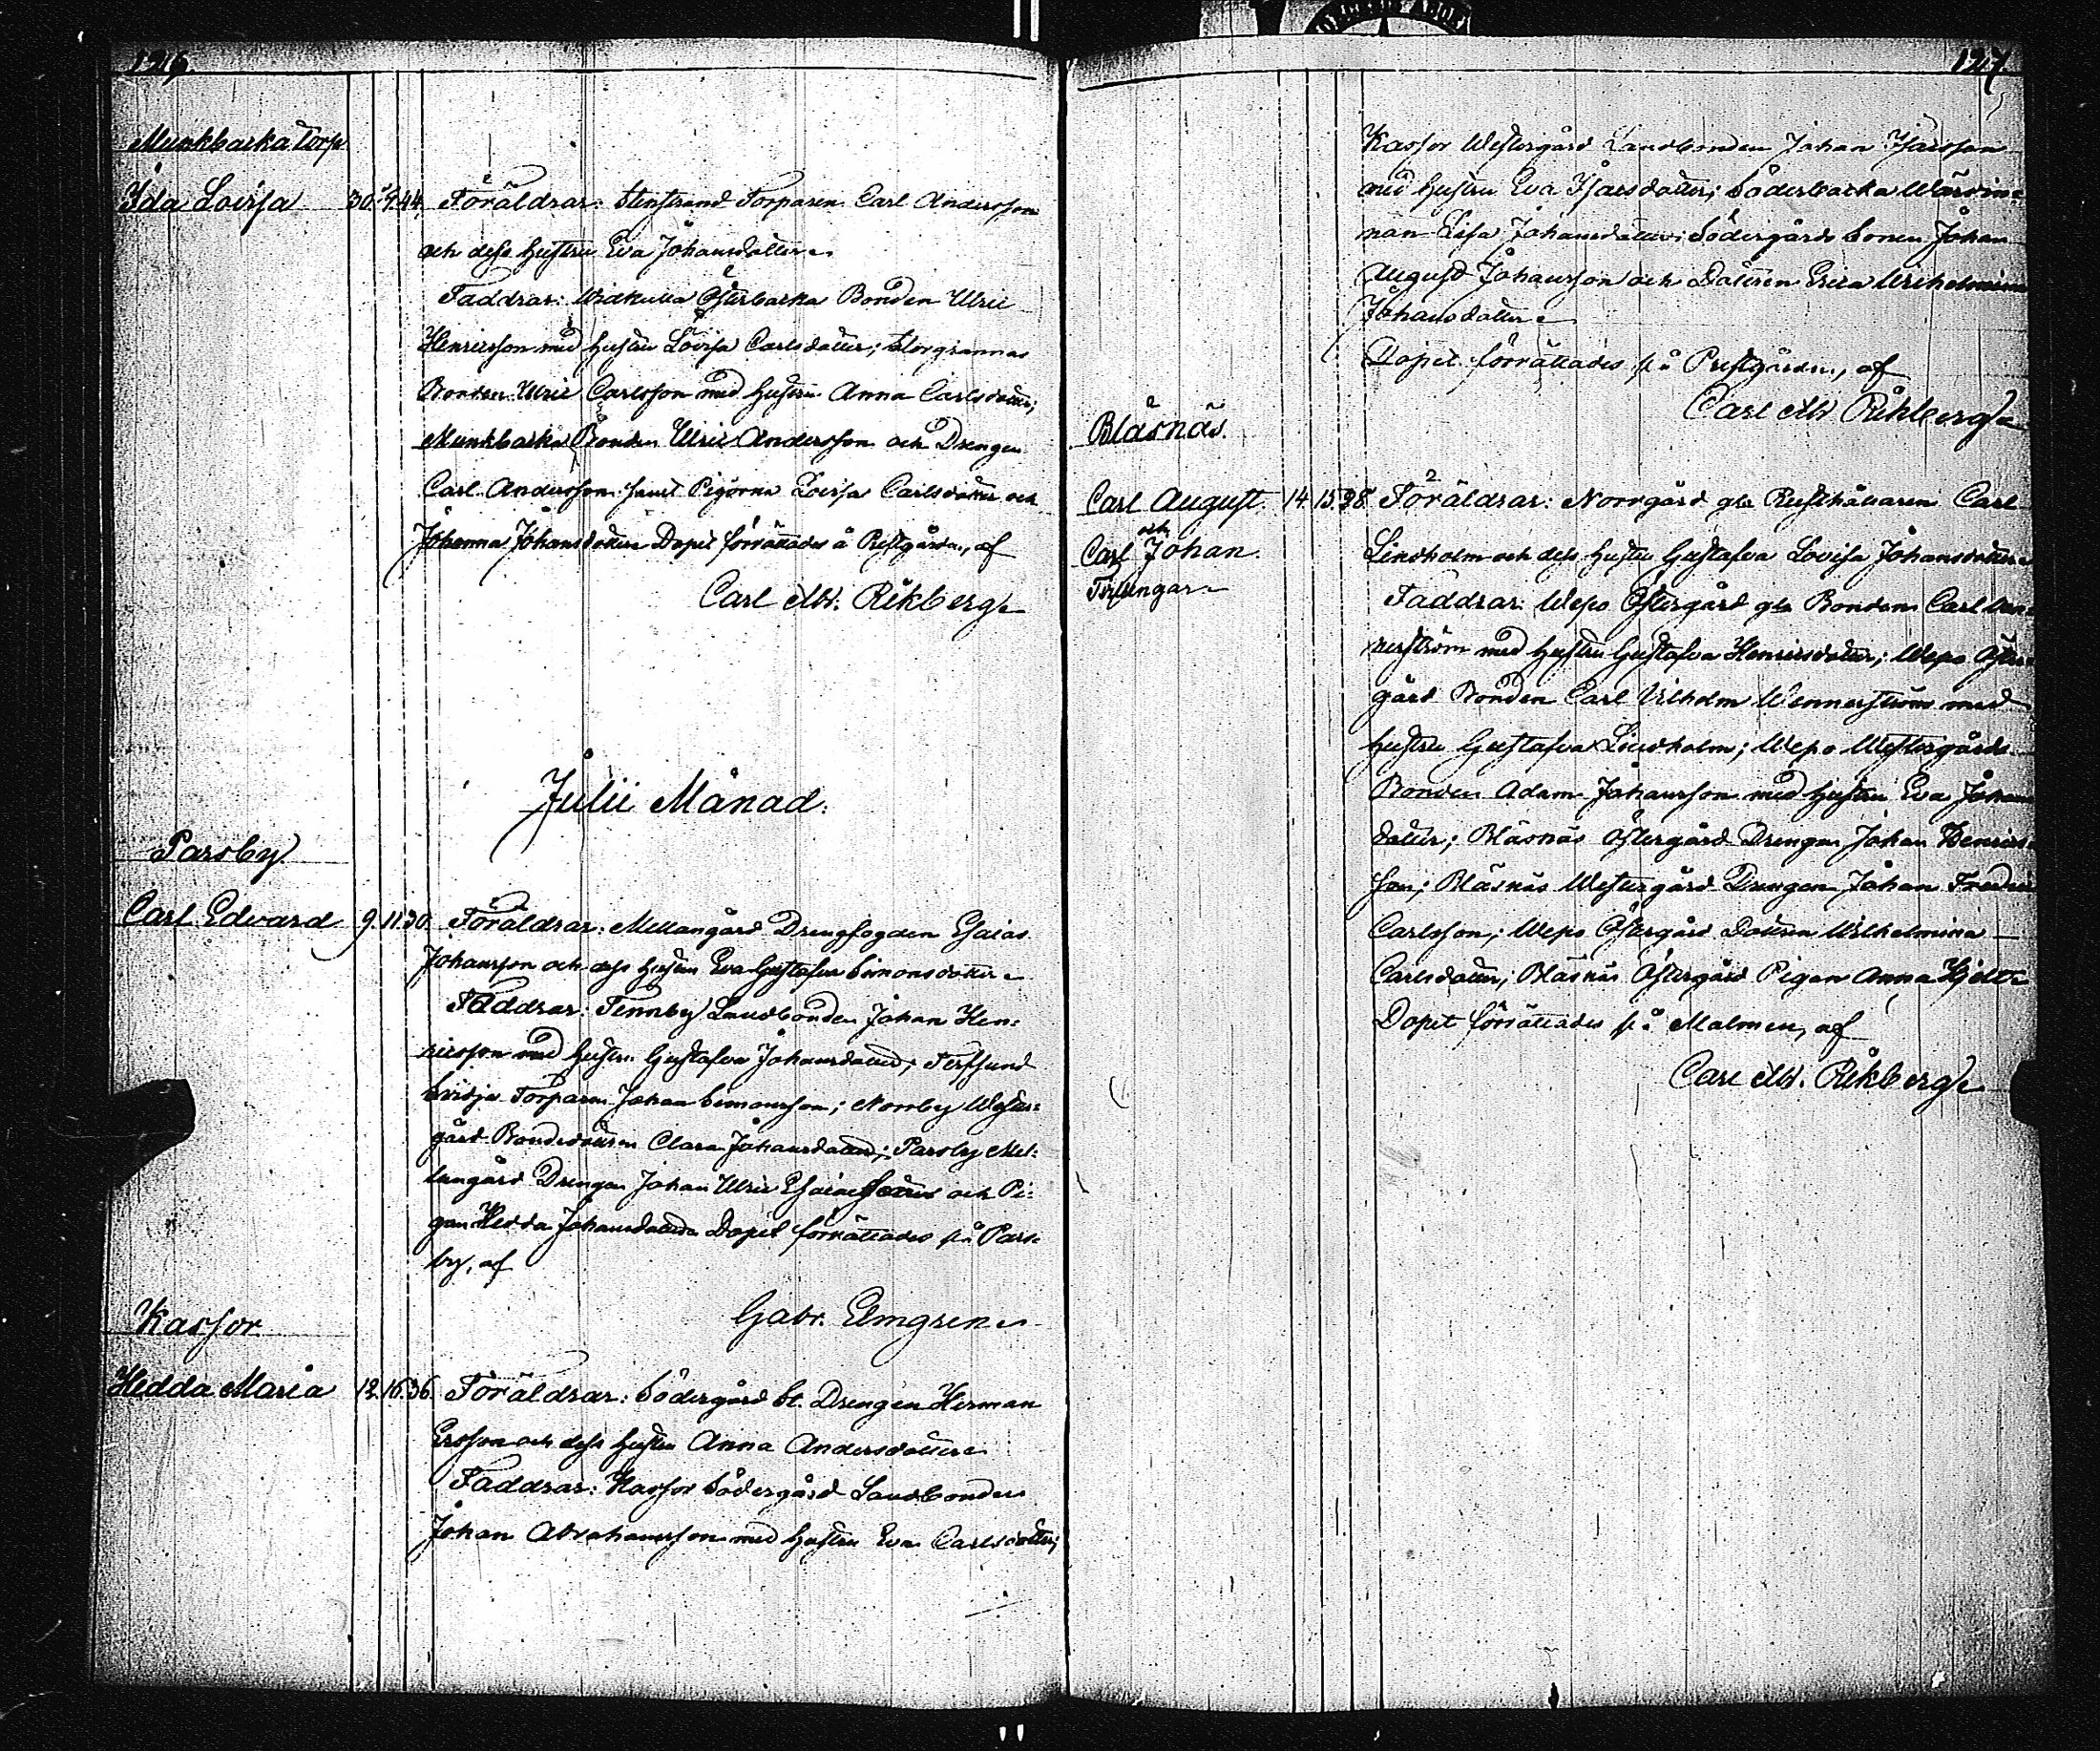 126.
Munkbacka Torp
Ida Lovisa 30. 44. Föräldrar: Stenstrand Torparen Carl Andersson
och dess hustru Eva Johansdotter
Faddrar: Österbacka Bonden Ulric
Henricsson med hustru Lovisa Carlsdotter; Storgrannas
Bonden Ulric Carlsson med hustru Anna Carlsdotter;
Munkbacka Bonden Ulric Andersson och Drengen
Carl Andersson samt Pigorna Lovisa Carlsdotter och
Johanna Johansdotter Dopet förrättades å Prestgården, af
Carl M. Rikberg
Julii Månad.
Parsby
Carl Edvard 9. 11. 30. Föräldrar: Mellangård Drengfogden Esaias
Johansson och dess hustru Eva Gustafva Simonsdotter
Faddrar: Tennby Landbonden Johan Hen-
ricsson med hustru Gustafva Johansdotter;
Torparen Johan Simonsson; Norrby Wester-
gård Bondedottren Clara Johansdotter; Parsby Mel-
langård Drengen Johan Ulric och Pi-
gan Hedda Johansdotter Dopet förrättades på Pars-
by, af
Gabr. Elmgren
Kassor
Hedda Maria 12. 16. 36. Föräldrar: Södergård St. Drengen Herman
Ersson och dess hustru Anna Andersdotter
Faddrar: Kassor Södergård Landbonden
Johan Abrahamsson med hustru Eva Carlsdotter;
127.
Kassor Westergård Landbonden Johan Isacsson
med hustru Eva Isacsdotter; Söderbacka Wärdin-
nan Lisa Johansdotter; Södergårds Sonen Johan
August Johansson och Dottren Erica Wilhelmina
Johansdotter
Dopet förrättades på Prestgården, af
Carl M Rikberg
Blåsnäs.
Carl August 14. 15. 38. Föräldrar: Norrgård gla Rusthållaren Carl
och
Carl Johan Lindholm och dess hustru Gustafva Lovisa Johansdotter
Tvillingar Faddrar: Wepo Östergård gla Bonden Carl Wen-
nerström med hustru Gustafva Henricsdotter; Wepo Öster-
gård Bonden Carl Vilhelm Wennerström med
hustru Gustafva Lindholm; Wepo Westergårds
Bonden Adam Johansson med hustru Eva Johans-
dotter; Blåsnäs Östergård Drengen Johan Henrics-
son; Blåsnäs Westergård Drengen Johan Fredric
Carlsson; Wepo Östergård Dottren Wilhelmina
Carlsdotter; Blåsnäs Östergård Pigan Anna Hjelt
Dopet förrättades på Malmen, af
Carl M. Rikberg